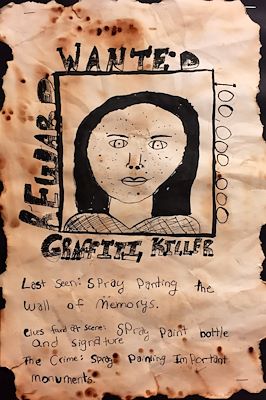 WANTED
REWARD
100,000,000
GRAFFITI KILLER
Last seen: SPray Panting the
Wall of Memorys.
Clues found at Scene: SPray Paint bottle
and signature
The Crime: Spray Painting Important
monuments.